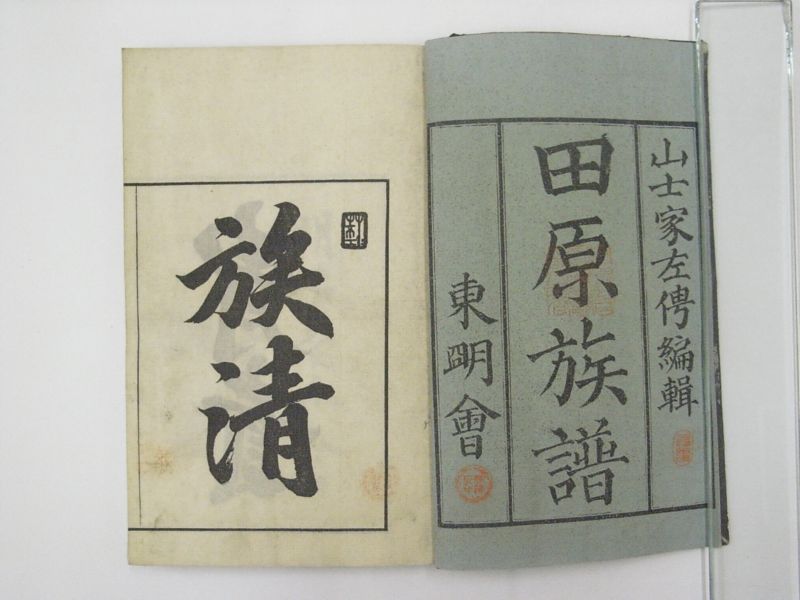 山士家左伝編輯
田原族譜
東明會
族清